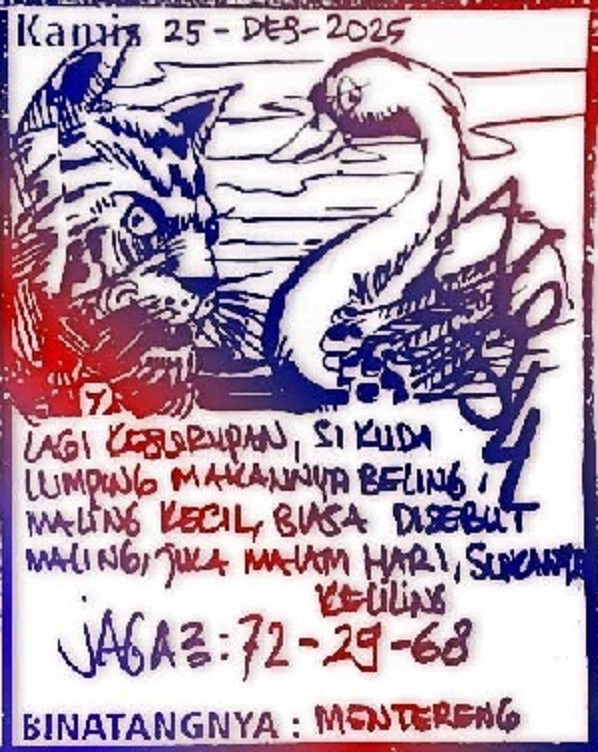 Kamis 25 - DES - 2025
7
LAGI KESURUPAN, SI KUDA
LUMPING MAKANNYA BELING,
MALING KECIL, BIASA DISEBUT
MALING, JIKA MALAM HARI, SUKANYA
KELILING
JAGA2 : 72 - 29 - 68
BINATANGNYA : MENTERENG